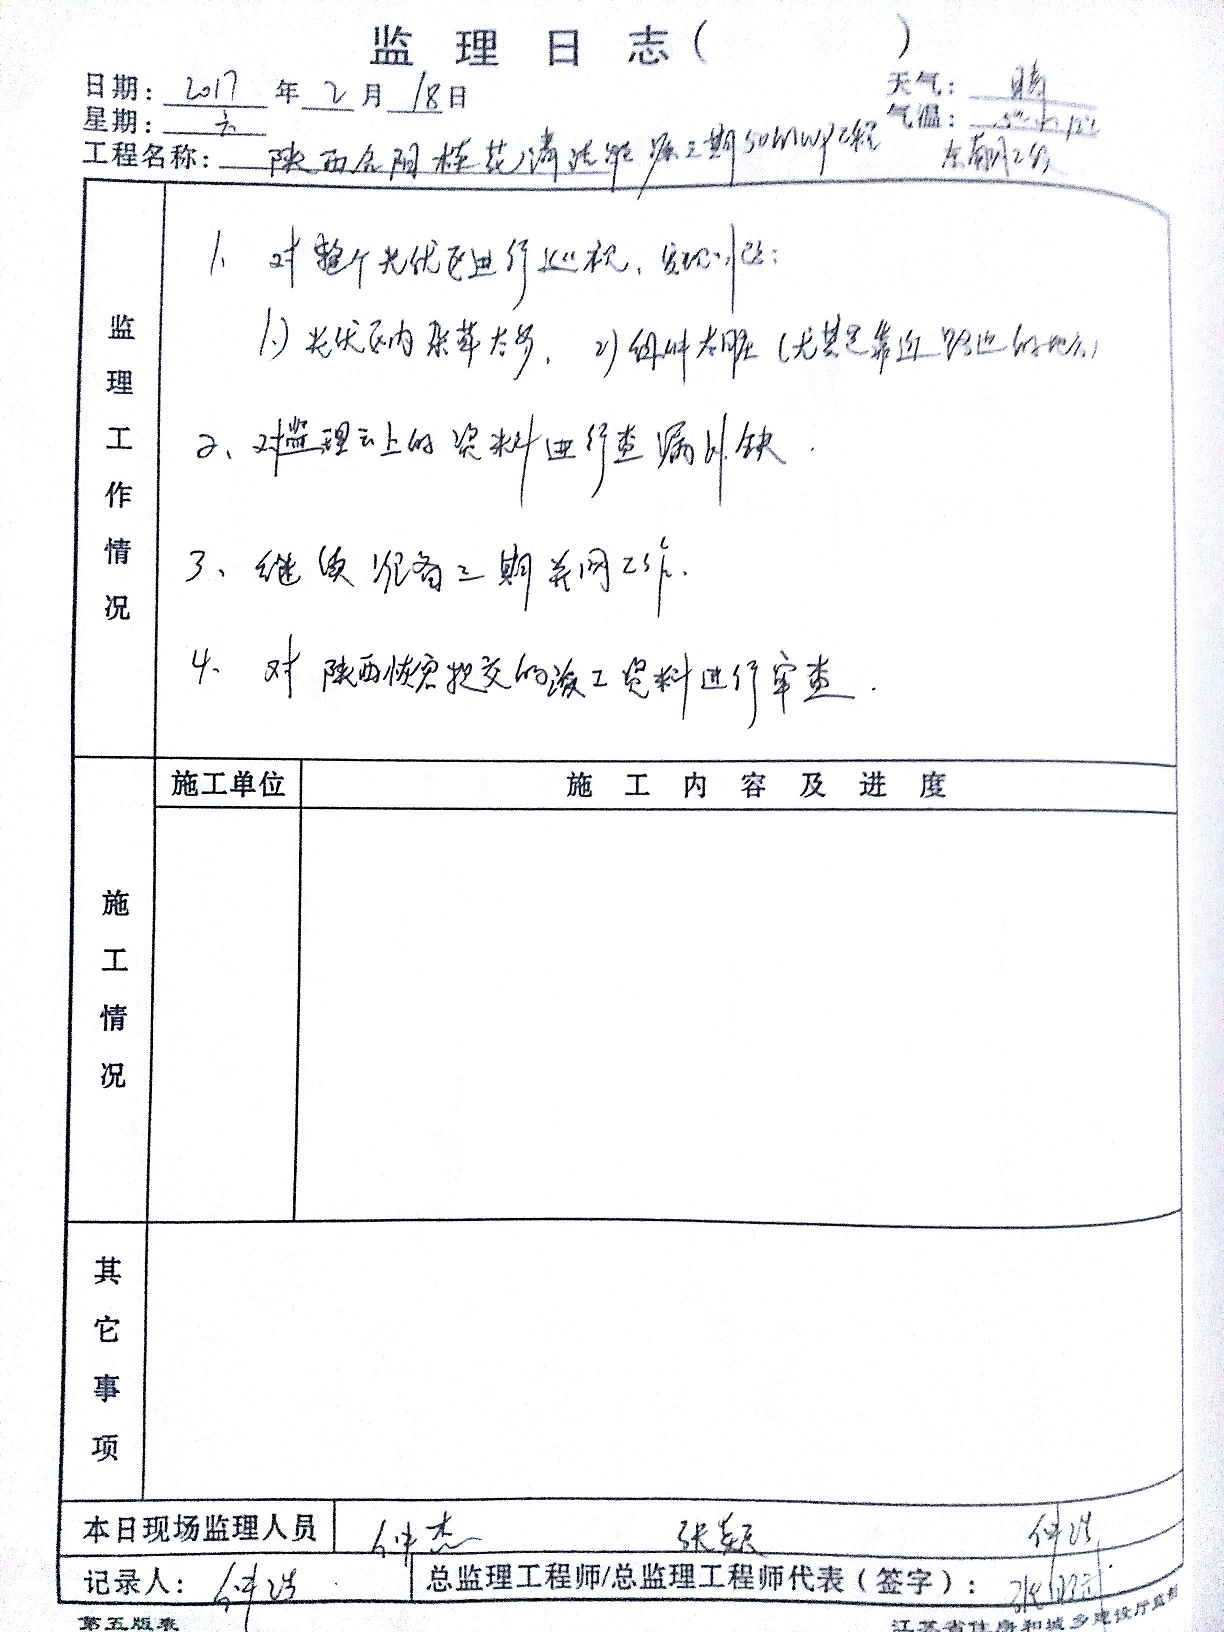 监理日志(　　　)
日期: 2017 年 2 月 18 日 天气: 晴
星期: 六 气温:
工程名称: 陕西合阳 三期50MWp工程 东南风2级
监理工作情况
1、对整个光伏区进行巡视,发现
1)光伏区内杂草太多, 2)组件太脏(尤其是靠近路边的地方)
2、对监理云上的资料进行查漏补缺.
3、继续准备三期并网工作.
4、对陕西恢宏提交的竣工资料进行审查.
施工单位 施工内容及进度
施工情况
其它事项
本日现场监理人员 仲杰 张颖 仲浩
记录人: 仲浩 总监理工程师/总监理工程师代表(签字):
第五版表 江苏省住房和城乡建设厅监制